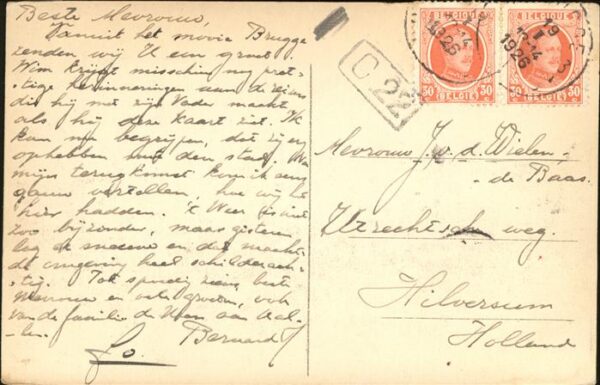 Beste Mevrouw,
Vanuit het mooie Brugge
zenden wij U een groet.
Wim krijgt misschien nog pret-
tige herinneringen aan de reis
die hij met zijn Vader maakt
als hij deze kaart ziet. Ik
kan me begrijpen, dat zij er
ophebben met den stad. Na
mijn terugkomst kom ik eens
gauw vertellen, hoe wij het
hier hadden. 't Weer is niet
zoo bijzonder, maar gisteren
lag de sneeuw en dat maakte
de omgeving heel schilderach-
tig. Tot spoedig ziens beste
Mevrouw en vele groeten, ook
van de familie de Veen aan U al-
len.
Bernard
Jo.
C 22
BELGIQUE
30 BELGIË 30
BELGIQUE
30 BELGIË 30
19
I
13-14
1926
Mevrouw J. v. d. Wielen-
de Baas.
Utrechtsche weg.
Hilversum
Holland